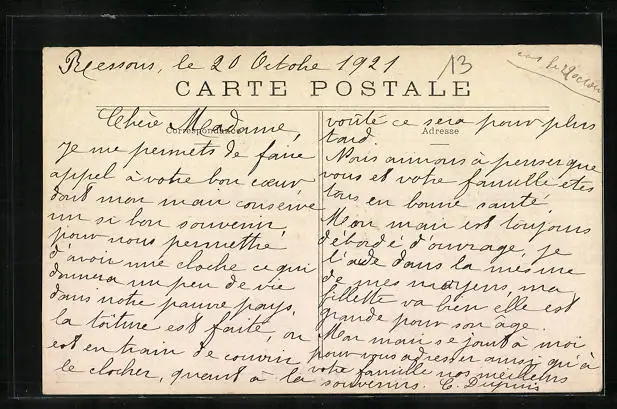 Ressons, le 20 Octobre 1921
13
CARTE POSTALE
Correspondance
Adresse
Chère Madame,
Je me permets de faire
appel à votre bon cœur
dont mon mari conserve
un si bon souvenir,
pour nous permettre
d'avoir une cloche ce qui
donnera un peu de vie
dans notre pauvre pays,
la toiture est faite, on
est en train de couvrir
le clocher, quant à la
voûte ce sera pour plus
tard.
Nous aimons à penser que
vous et votre famille êtes
tous en bonne santé.
Mon mari est toujours
débordé d'ouvrage, je
l'aide dans la mesure
de mes moyens, ma
fillette va bien elle est
grande pour son âge.
Mon mari se joint à moi
pour vous adresser ainsi qu'à
votre famille nos meilleurs
souvenirs. C. Dupuis